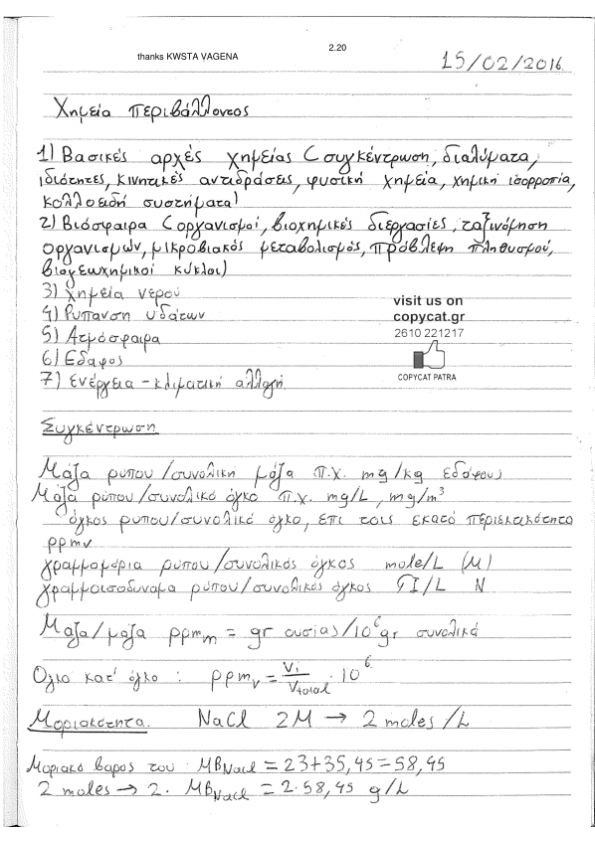 thanks KWSTA VAGENA
2.20
15/02/2016
Χημεία περιβάλλοντος
1) Βασικές αρχές χημείας (συγκέντρωση, διαλύματα,
ιδιότητες, κινητικές αντιδράσεις, φυσική χημεία, χημική ισορροπία,
κολλοειδή συστήματα)
2) Βιόσφαιρα (οργανισμοί, βιοχημικές διεργασίες, ταξινόμηση
οργανισμών, μικροβιακός μεταβολισμός, πρόβλεψη πληθυσμού,
βιογεωχημικοί κύκλοι)
3) Χημεία νερού
4) Ρύπανση υδάτων
5) Ατμόσφαιρα
6) Έδαφος
7) Ενέργεια - κλιματική αλλαγή
visit us on
copycat.gr
2610 221217
COPYCAT PATRA
Συγκέντρωση
Μάζα ρύπου/συνολική μάζα π.χ. mg/kg εδάφους
Μάζα ρύπου/συνολικό όγκο π.χ. mg/L, mg/m³
όγκος ρυπου/συνολικό όγκο, επι τοις εκατό περιεκτικότητα
ppmv
γραμμομόρια ρύπου/συνολικός όγκος mole/L (M)
γραμμοισοδυναμα ρύπου/συνολικός όγκος ΓΙ/L N
Μάζα/μάζα ppm_m = gr ουσίας/10⁶gr συνολικά
Όγκο κατ' όγκο : ppm_v = Vi/Vtotal · 10⁶
Μοριακότητα. NaCl 2M → 2 moles/L
Μοριακό βάρος του MB_NaCl = 23+35,45=58,45
2 moles → 2. MB_NaCl = 2·58,45 g/L